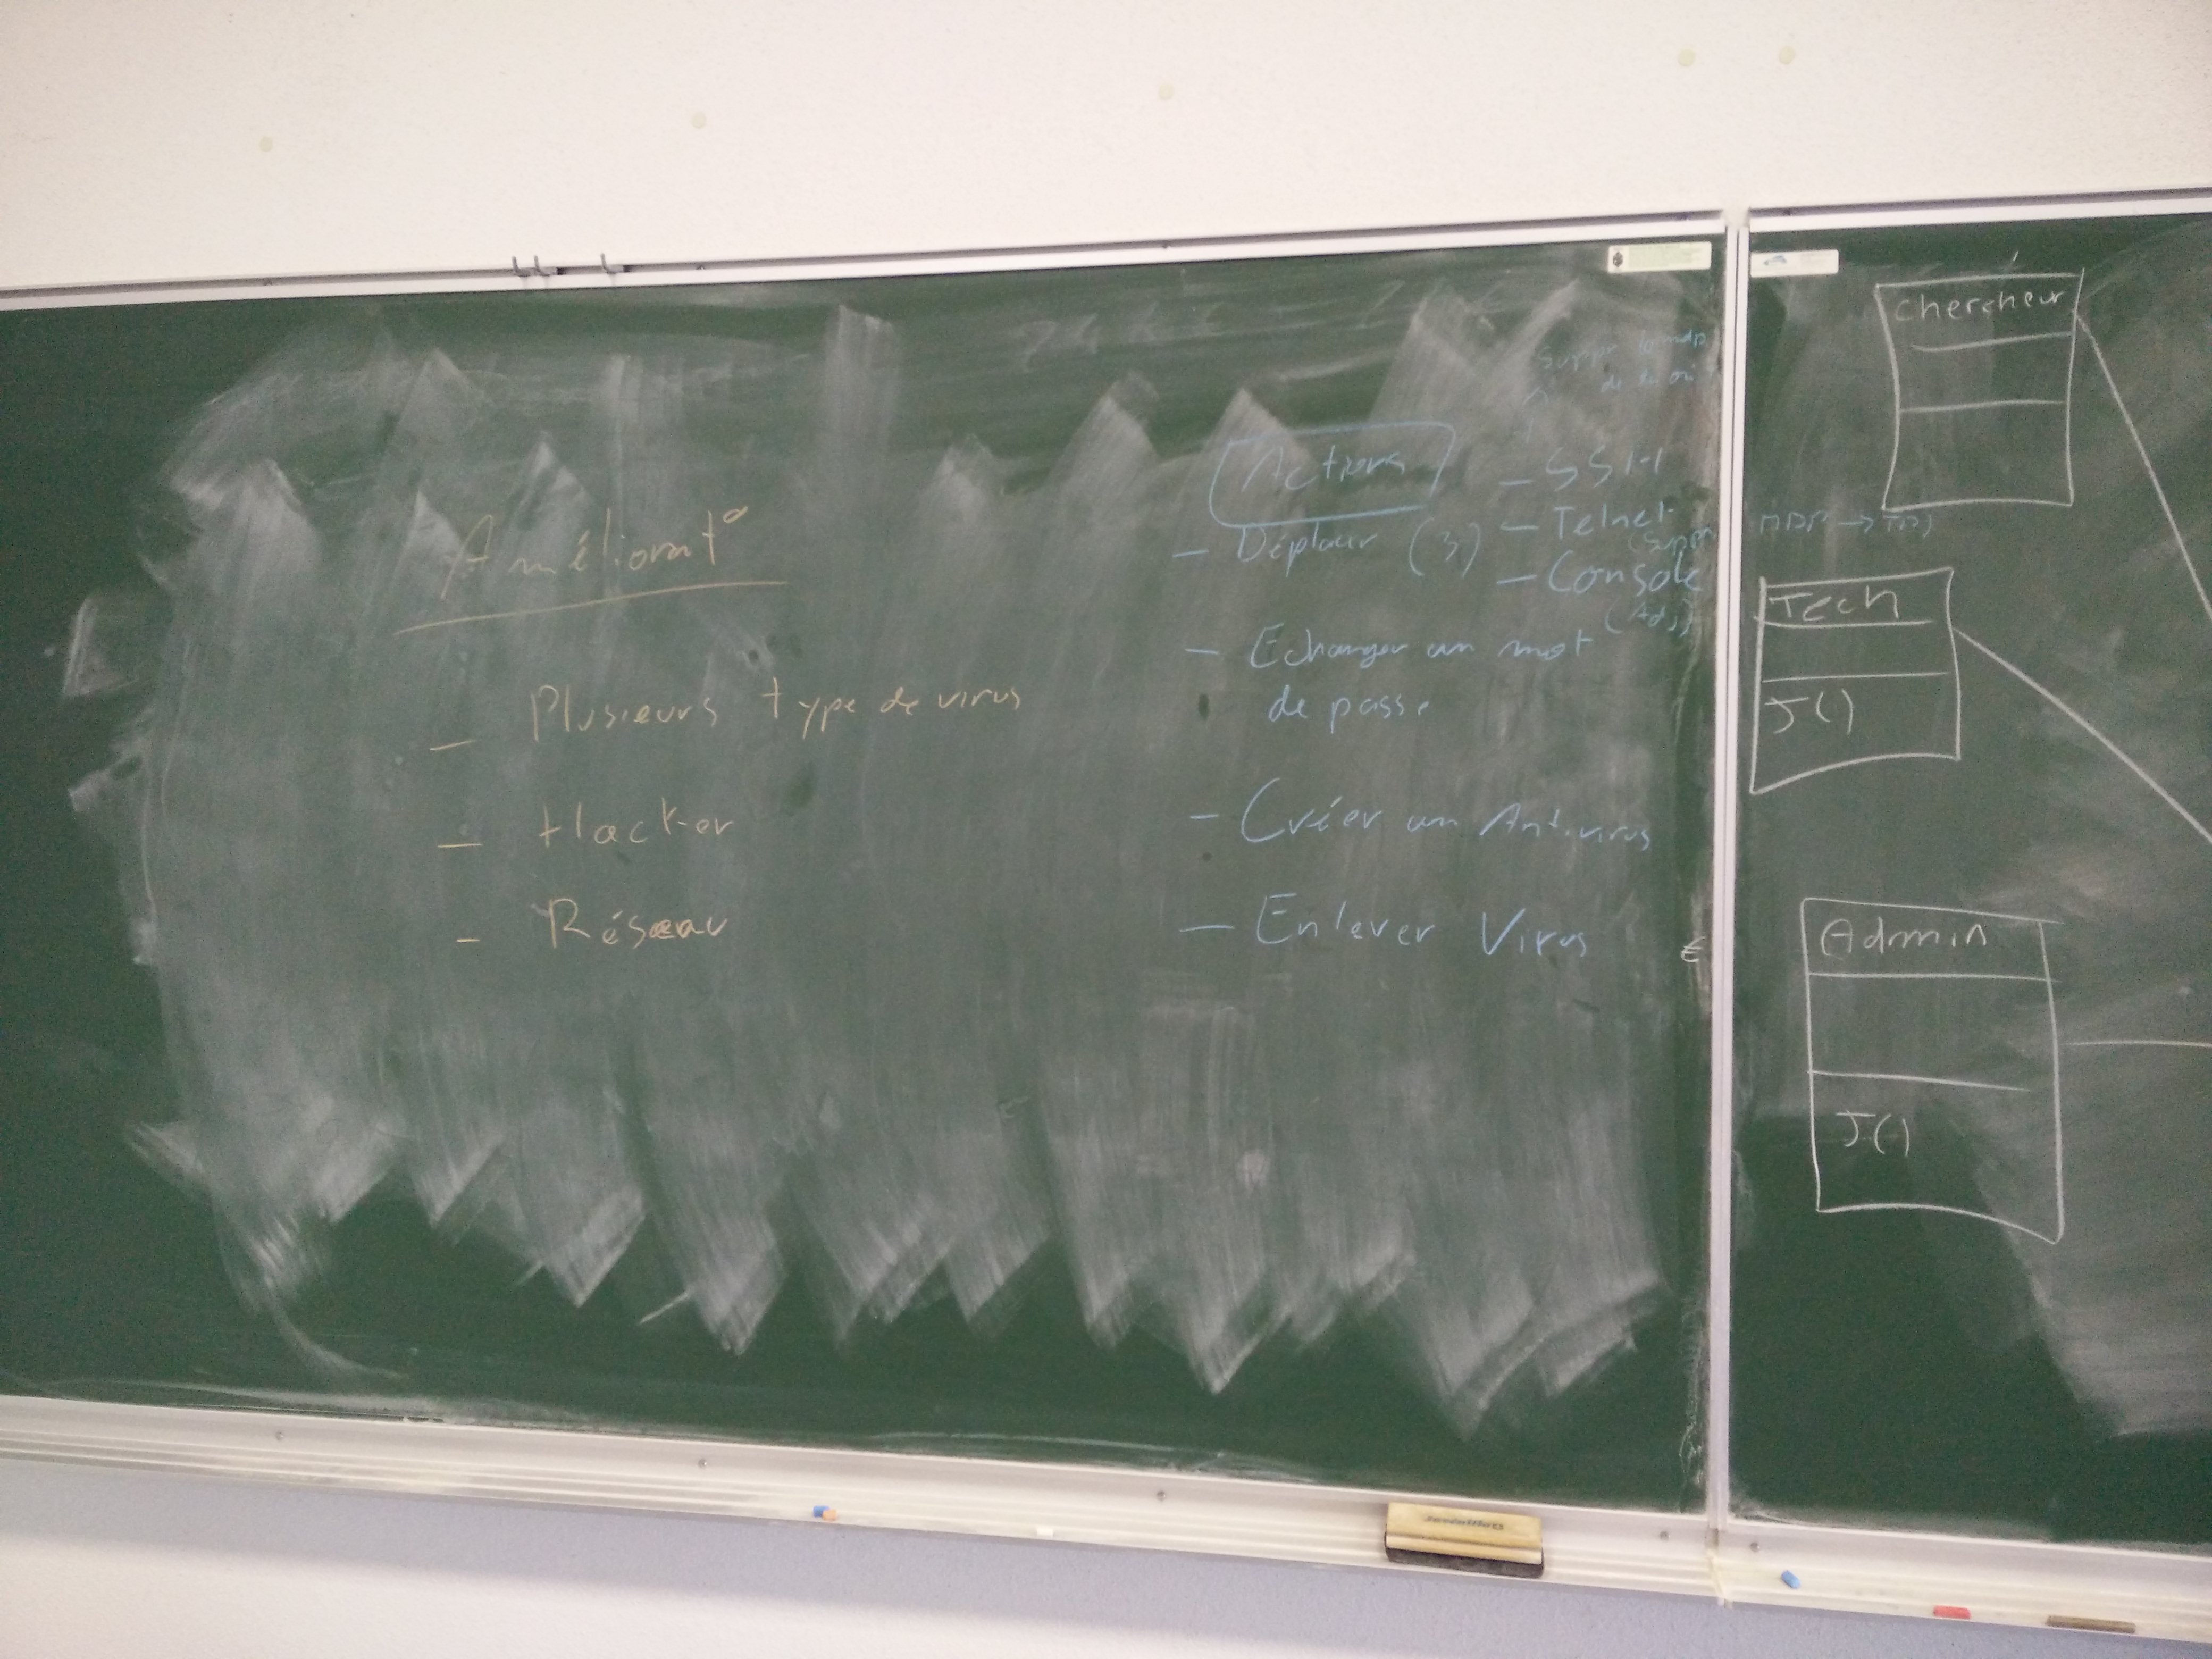 Améliorat°
- Plusieurs type de virus
- Hacker
- Réseau
Suppr
Actions
- Déplacer (3)
- SSH
- Telnet
(Suppr MDP →
- Console
(Adj)
- Echanger un mot
de passe
- Créer un Antivirus
- Enlever Virus
€
Chercheur
Tech
J()
Admin
J()